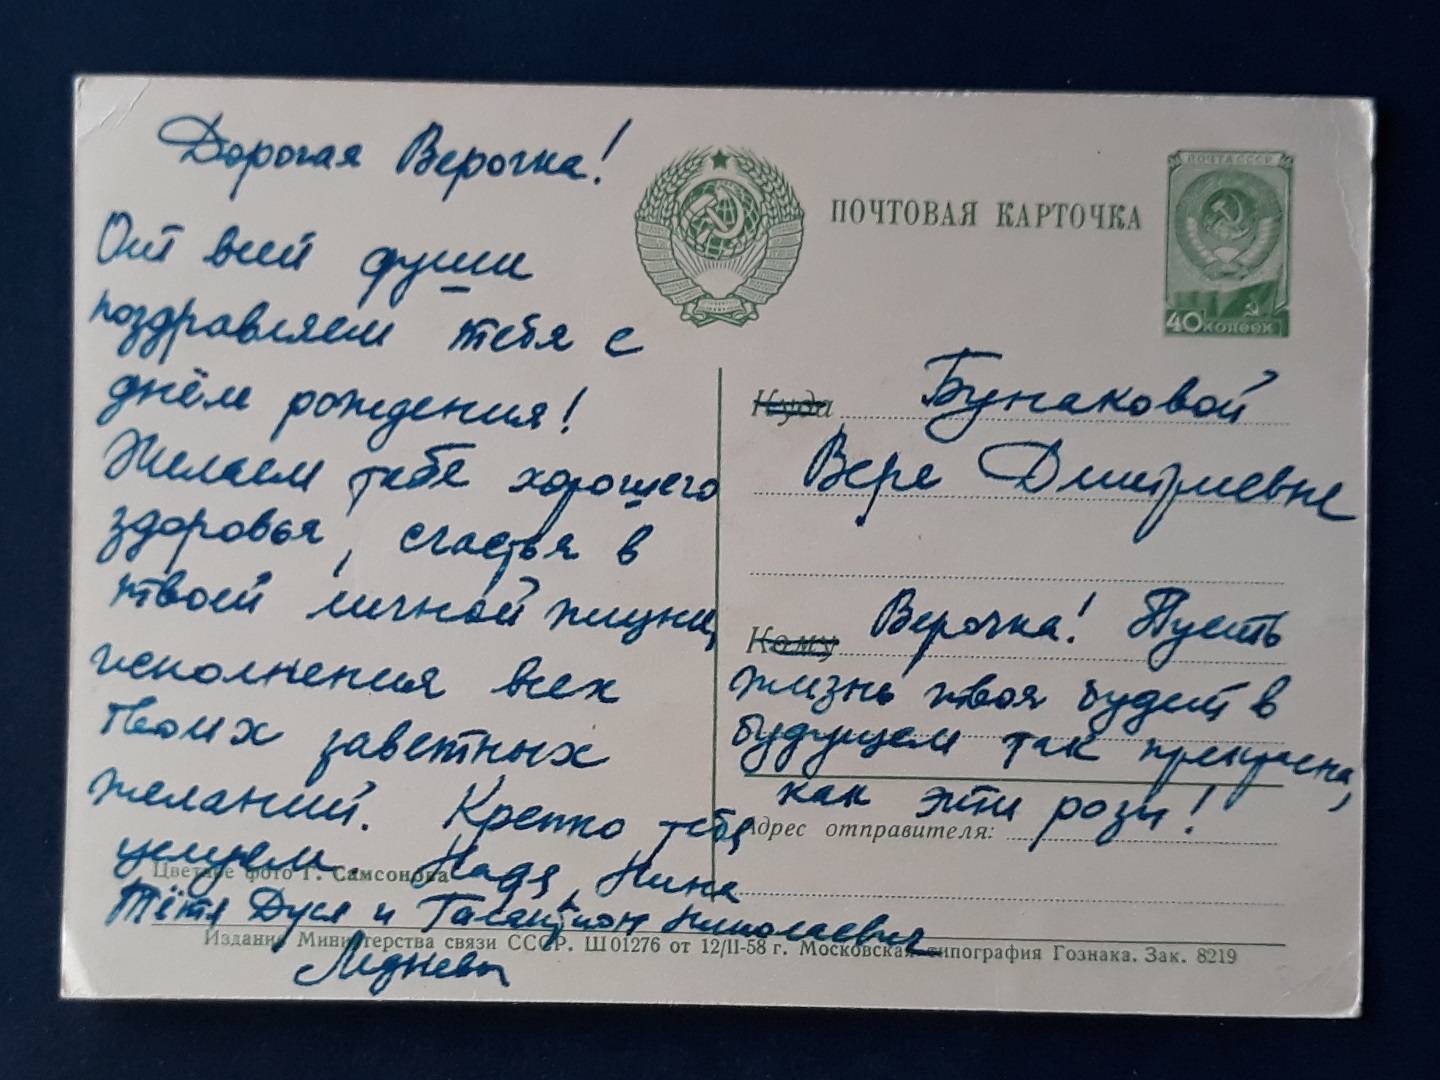 Дорогая Верочка!
От всей души
поздравляем тебя с
днём рождения!
Желаем тебе хорошего
здоровья, счастья в
твоей личной жизни,
исполнения всех
твоих заветных
желаний. Крепко тебя
целуем. Надя, Нина
тётя Дуся и Николаевич
Цветное фото Г. Самсонова
ПОЧТОВАЯ КАРТОЧКА
ПОЧТА СССР
40 КОПЕЕК
Куда Бунаковой
Вере Дмитриевне
Кому Верочка! Пусть
жизнь твоя будет в
будущем так прекрасна,
как эти розы!
Адрес отправителя:
Издание Министерства связи СССР. Ш 01276 от 12/II-58 г. Московская типография Гознака. Зак. 8219